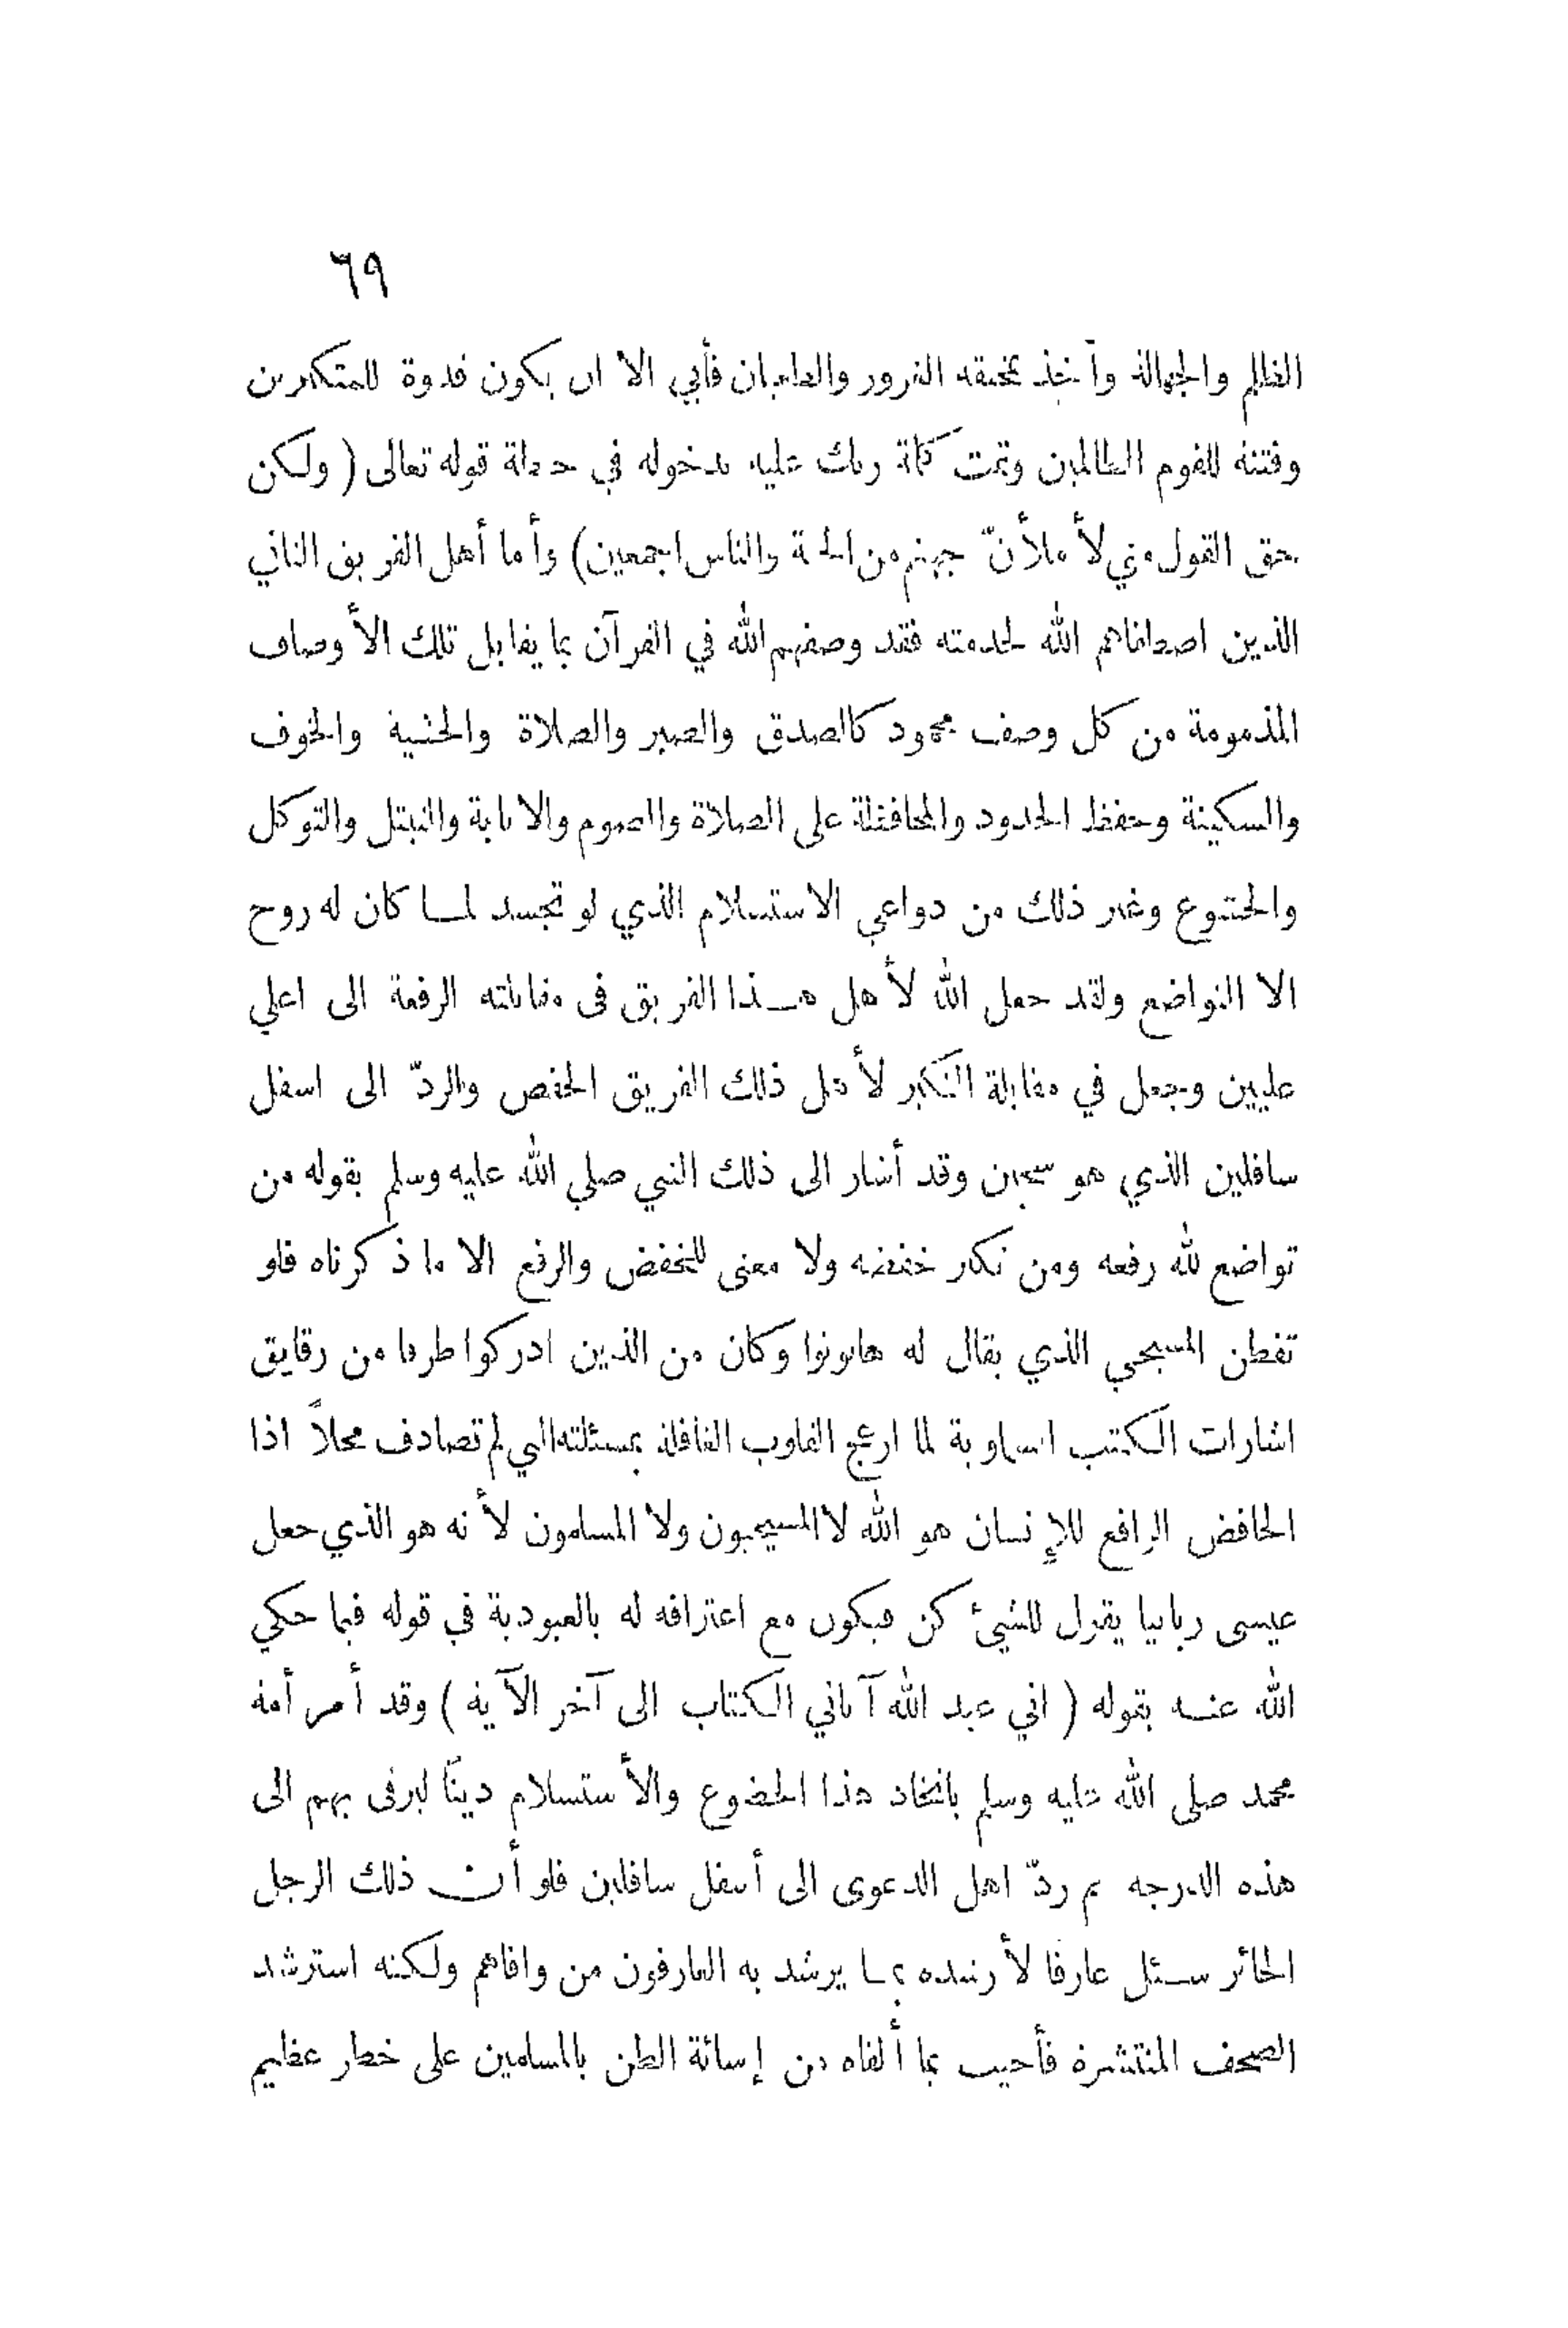 ٦٩
الظلم والجهالة وأخذ بمخنقه الغرور والطغيان فأبي الا ان يكون قدوة للمتكبرين
وفتنة للقوم الظالمين وتمت كلمة ربك عليه بدخوله في جملة قوله تعالى ( ولكن
حق القول مني لأ ملأنّ جهنم من الجنة والناس اجمعين) وأما أهل الفريق الثاني
الذين اصطفاهم الله لخدمته فقد وصفهم الله في القرآن بما يقابل تلك الأ وصاف
المذمومة من كل وصف محمود كالصدق والصبر والصلاة والخشية والخوف
والسكينة وحفظ الحدود والمحافظة على الصلاة والصوم والانابة والتبتل والتوكل
والخشوع وغير ذلك من دواعي الاستسلام الذي لو تجسد لما كان له روح
الا التواضع ولقد جعل الله لأ هل هذا الفريق فى مقابلته الرفعة الى اعلي
عليين وجعل في مقابلة التكبر لأ هل ذلك الفريق الخفض والردّ الى اسفل
سافلين الذي هو سجين وقد أشار الى ذلك النبي صلي الله عليه وسلم بقوله من
تواضع لله رفعه ومن تكبر خفضه ولا معنى للخفض والرفع الا ما ذكرناه فلو
تفطن المسيحي الذي يقال له هانوتوا وكان من الذين ادركوا طرفا من رقايق
اشارات الكتب السماوية لما ازعج القلوب الغافلة بمسئلته التي لم تصادف محلاً اذا
الخافض الرافع للإنسان هو الله لا المسيحيون ولا المسلمون لأ نه هو الذي جعل
عيسى ربانيا يقول للشيئ كن فيكون مع اعترافه له بالعبودية في قوله فيما حكي
الله عنه بقوله ( اني عبد الله آتاني الكتاب الى آخر الآية ) وقد أمر أمة
محمد صلى الله عليه وسلم باتخاذ هذا الخضوع والأ ستسلام دينًا ليرقى بهم الى
هذه الدرجه ثم ردّ اهل الدعوى الى أسفل سافلين فلو أن ذلك الرجل
الحائر سئل عارفا لأ رشده بما يرشد به العارفون من وافاهم ولكنه استرشد
الصحف المنتشرة فأجيب بما ألقاه من إسائة الظن بالمسلمين على خطار عظيم